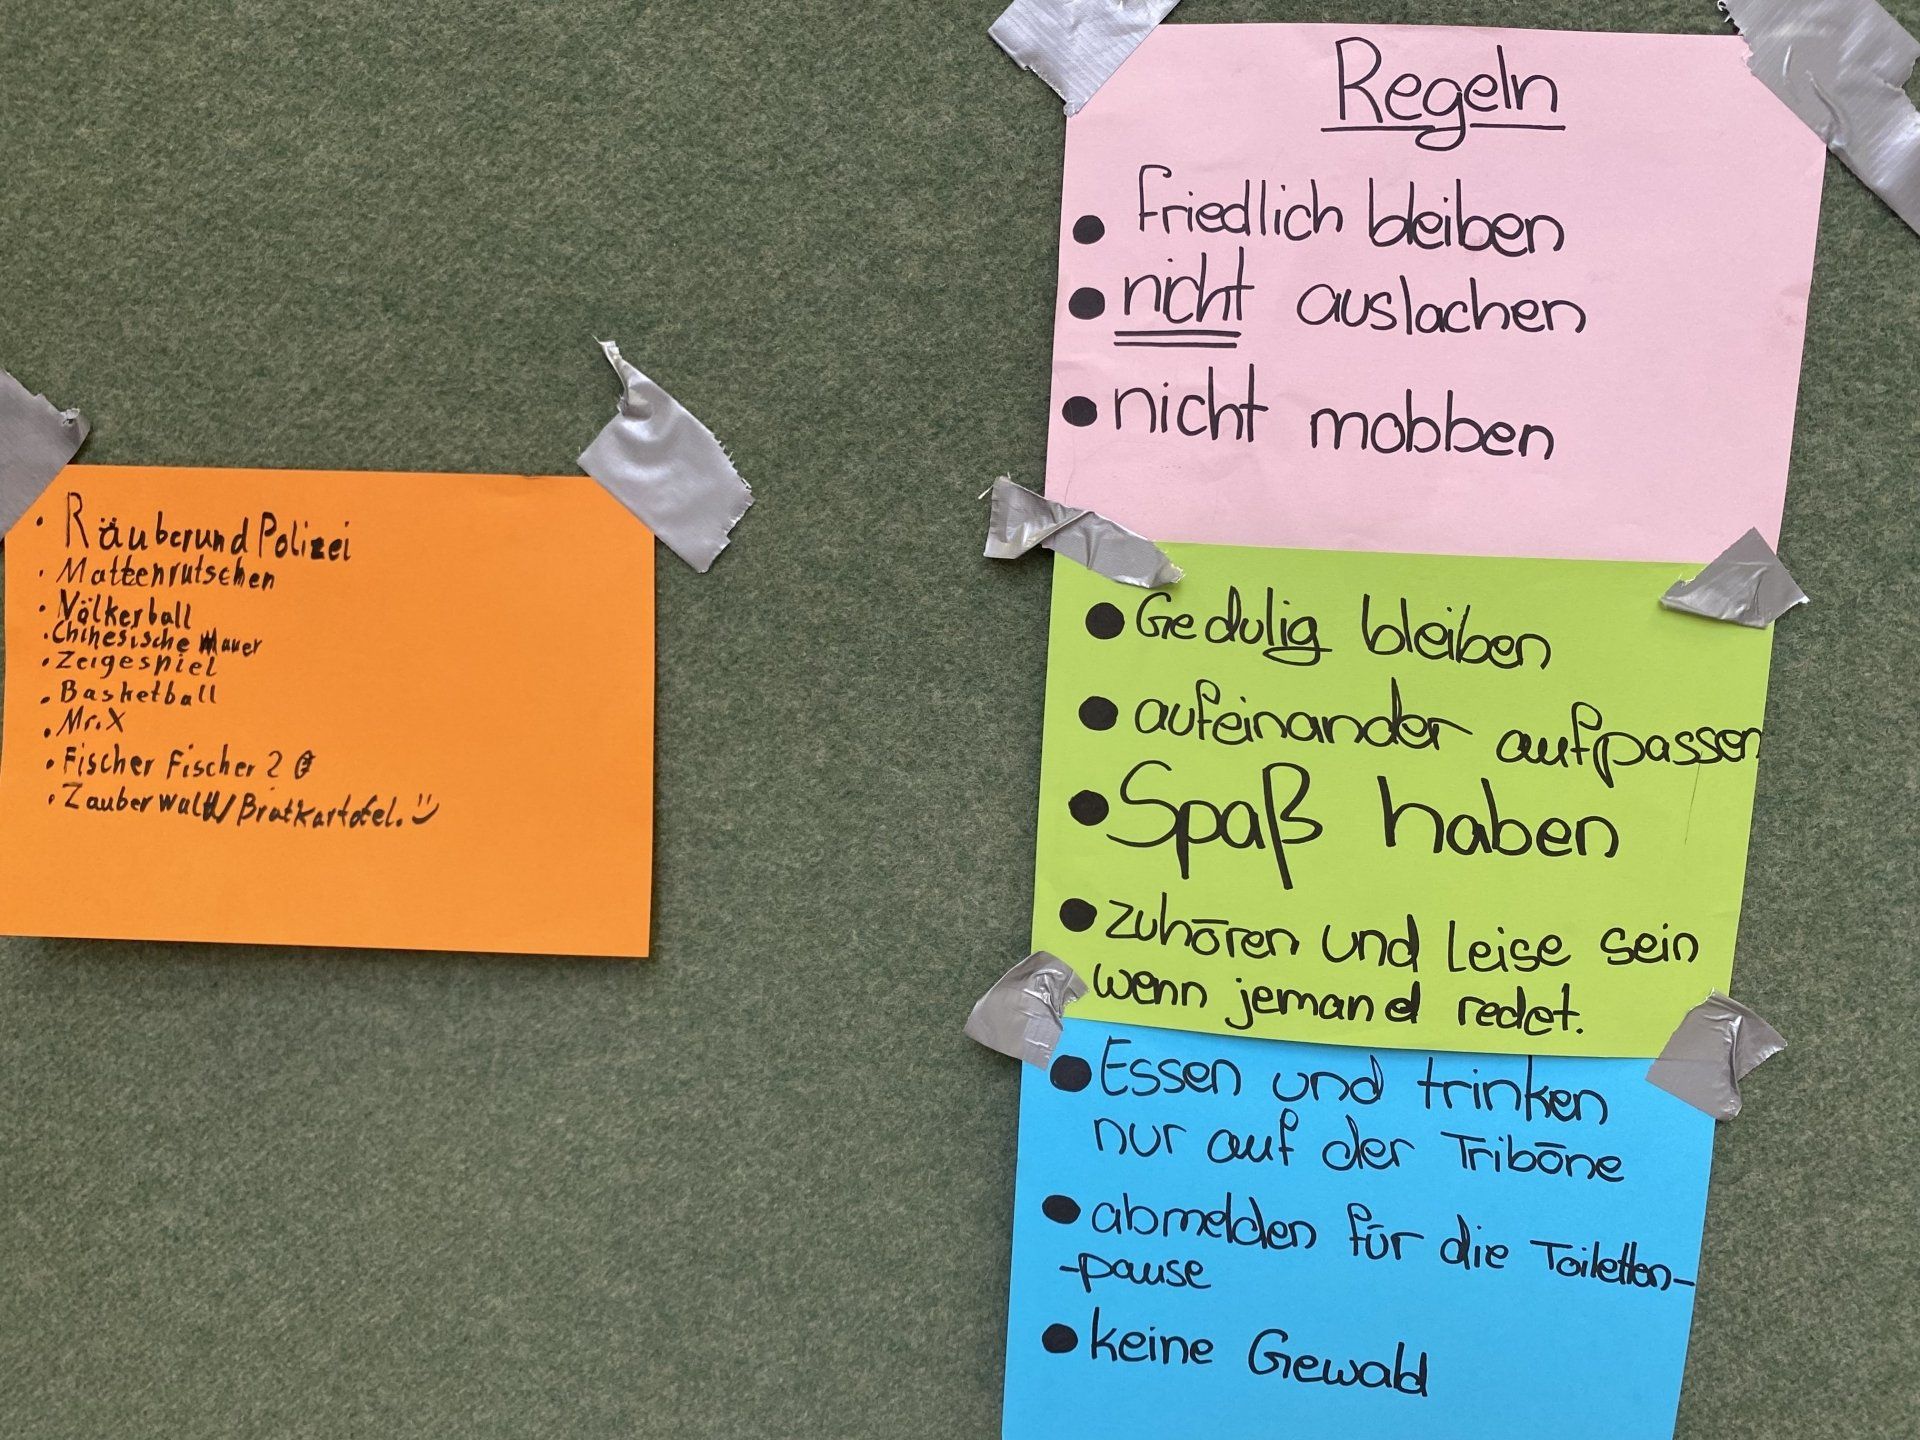 • Räuber und Polizei
• Mattenrutschen
• Völkerball
• Chinesische Mauer
• Zeigespiel
• Basketball
• Mr. X
• Fischer Fischer 2
• Zauberwald/Bratkartofel.
Regeln
• friedlich bleiben
• nicht auslachen
• nicht mobben
• Gedulig bleiben
• aufeinander aufpassen
• Spaß haben
• zuhören und Leise sein
wenn jemand redet.
• Essen und trinken
nur auf der Triböne
• abmelden für die Toiletten-
-pause
• keine Gewald